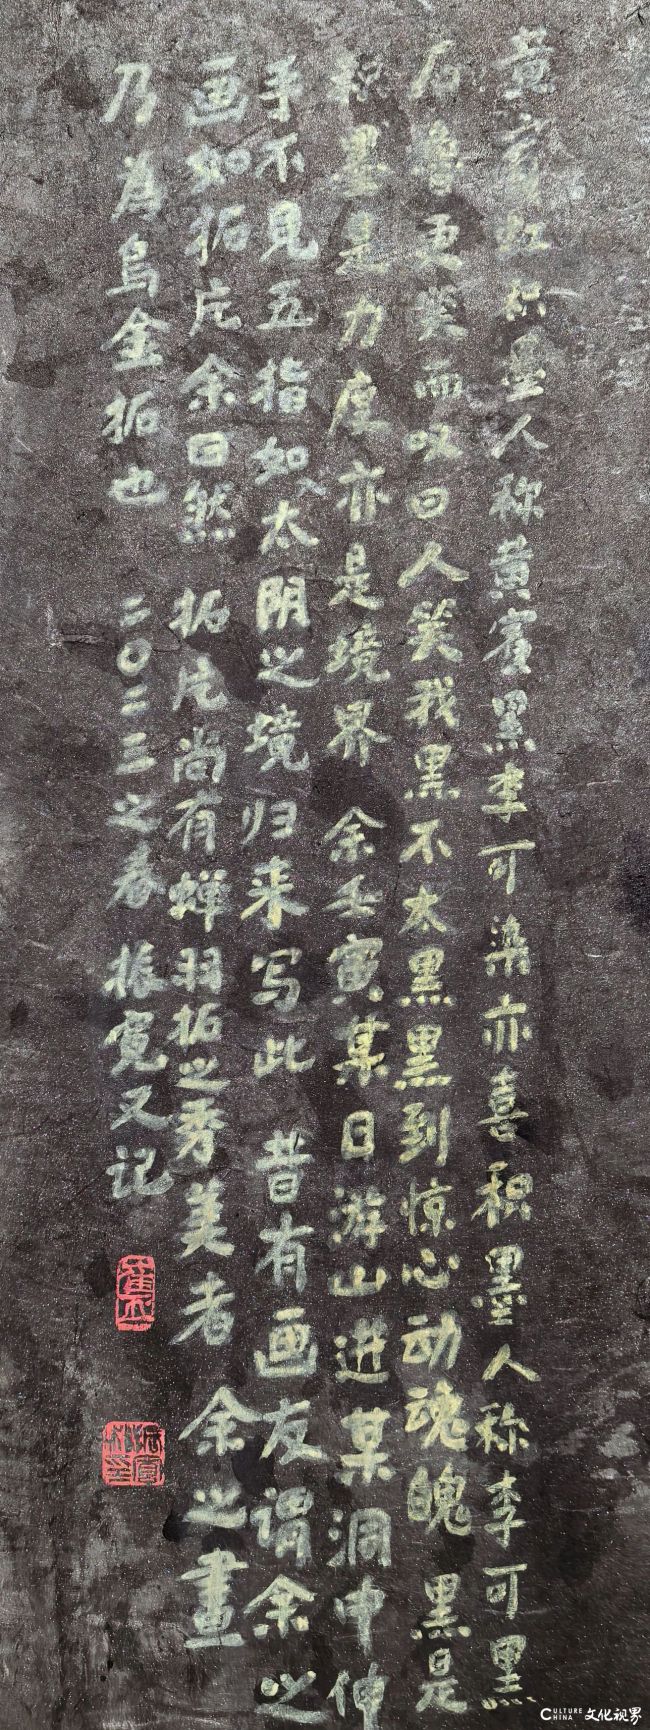 黄宾虹积墨人称黄宾黑李可染亦喜积墨人称李可黑
石鲁更笑而叹曰人笑我黑不太黑黑到惊心动魂魄 黑是
积墨是力度亦是境界 余壬寅某日游山进某洞中伸
手不見五指如太阴之境归来写此 昔有画友谓余之
画如拓片余曰然 拓片尚有蝉羽拓之秀美者 余之畫
乃為烏金拓也 二〇二三之春 振寛又记
CULTURE CHINA 文化视界